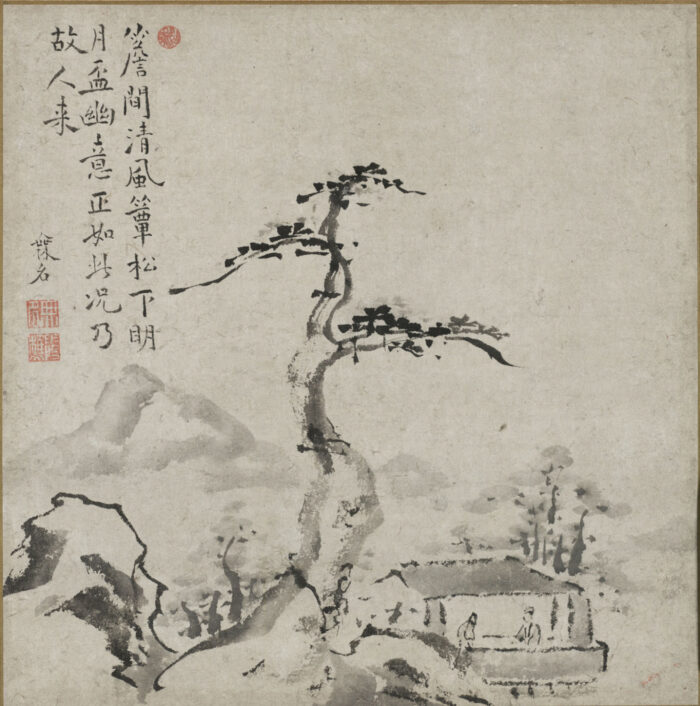 簷間清風簟松下明
月盃幽意正如此況乃
故人来
無名